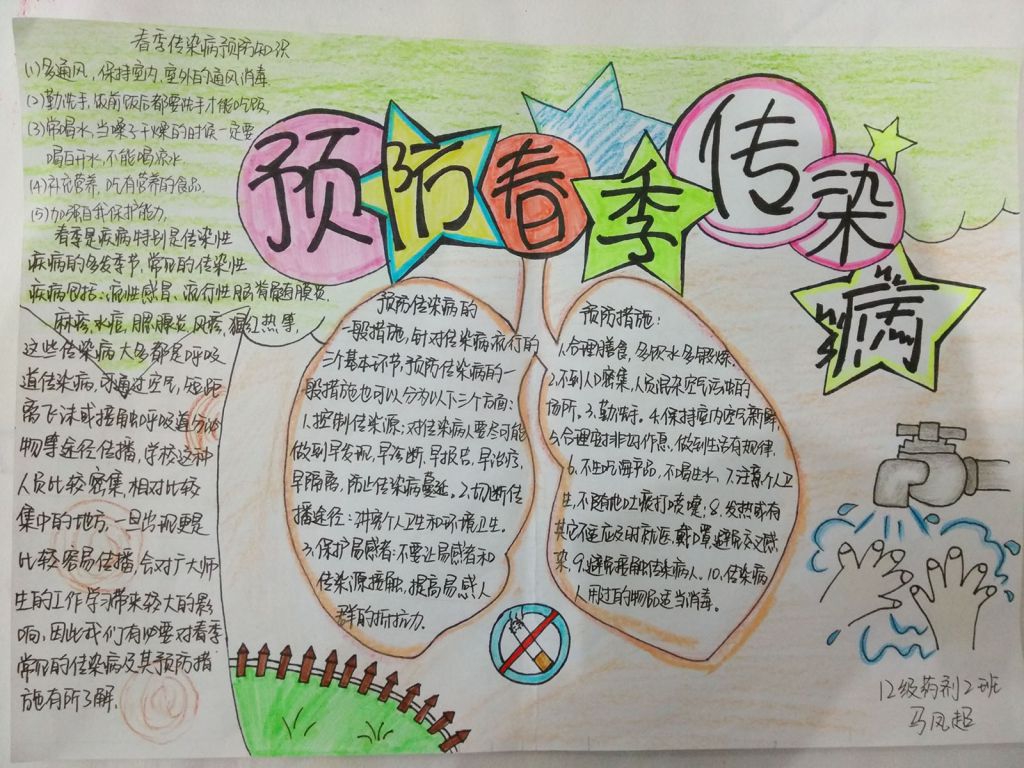 预防春季传染病
春季传染病预防知识
(1)多通风,保持室内,室外的通风消毒.
(2)勤洗手,饭前饭后都要洗手才能吃饭
(3)常喝水,当嗓子干燥的时候一定要
喝白开水,不能喝凉水.
(4)补充营养,吃有营养的食品.
(5)加强自我保护能力.
春季是疾病特别是传染性
疾病的多发季节,常见的传染性
疾病包括:流性感冒、流行性脑脊髓膜炎.
麻疹,水痘,腮腺炎,风疹,猩红热等,
这些传染病大多都是呼吸
道传染病,可通过空气,短距
离飞沫或接触呼吸道分泌
物等途径传播,学校这种
人员比较密集,相对比较
集中的地方,一旦出现更是
比较容易传播,会对广大师
生的工作学习带来较大的影
响,因此我们有必要对春季
常见的传染病及其预防措
施有所了解.
预防传染病的
一般措施,针对传染病流行的
三个基本环节,预防传染病的一
般措施也可以分为以下三个方面:
1.控制传染源:对传染病人要尽可能
做到早发现,早诊断,早报告,早治疗,
早隔离,防止传染病蔓延.2.切断传
播途径:讲究个人卫生和环境卫生。
3.保护易感者:不要让易感者和
传染源接触,提高易感人
群的抵抗力.
预防措施:
1.合理膳食,多饮水多锻炼.
2.不到人口密集,人员混杂空气污染的
场所.3.勤洗手.4.保持室内空气新鲜
5.合理安排好作息,做到生活有规律.
6.不生吃海平品,不喝生水.7.注意个人卫
生,不随地吐痰打喷嚏;8.发热或有
其它不适应及时就医,戴口罩,避免交叉感
染.9.避免接触传染病人.10.传染病
人用过的物品适当消毒.
12级药剂2班
马凤超